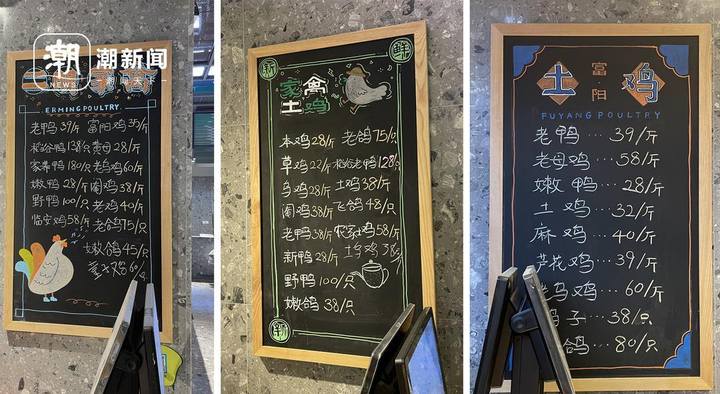 潮
NEWS
潮新闻
ERMING POULTRY
老鸭 39/斤 富阳鸡 35/斤
138/只 28/斤
家养鸭 180/只 老乌鸡 60/斤
嫩鸭 28/斤 阉鸡 38/斤
野鸭 100/只 老鸡 40/斤
临安鸡 58/斤 老鸽 75/只
嫩鸽 45/只
童子鸡 60/只
新
鲜
家禽
土鸡
本鸡 28/斤 老鸽 75/只
草鸡 22/斤 稻谷老鸭 128/只
乌鸡 28/斤 土鸡 38/斤
阉鸡 38/斤 飞鸽 48/只
老鸭 38/斤 农家土鸡 58/斤
新鸭 28/斤 38/斤
野鸭 100/只
嫩鸽 38/只
土 富阳 鸡
FUYANG POULTRY
老鸭···39/斤
老母鸡···58/斤
嫩鸭···28/斤
土鸡···32/斤
麻鸡···40/斤
芦花鸡···39/斤
老乌鸡···60/斤
子···38/只
鸽···80/只